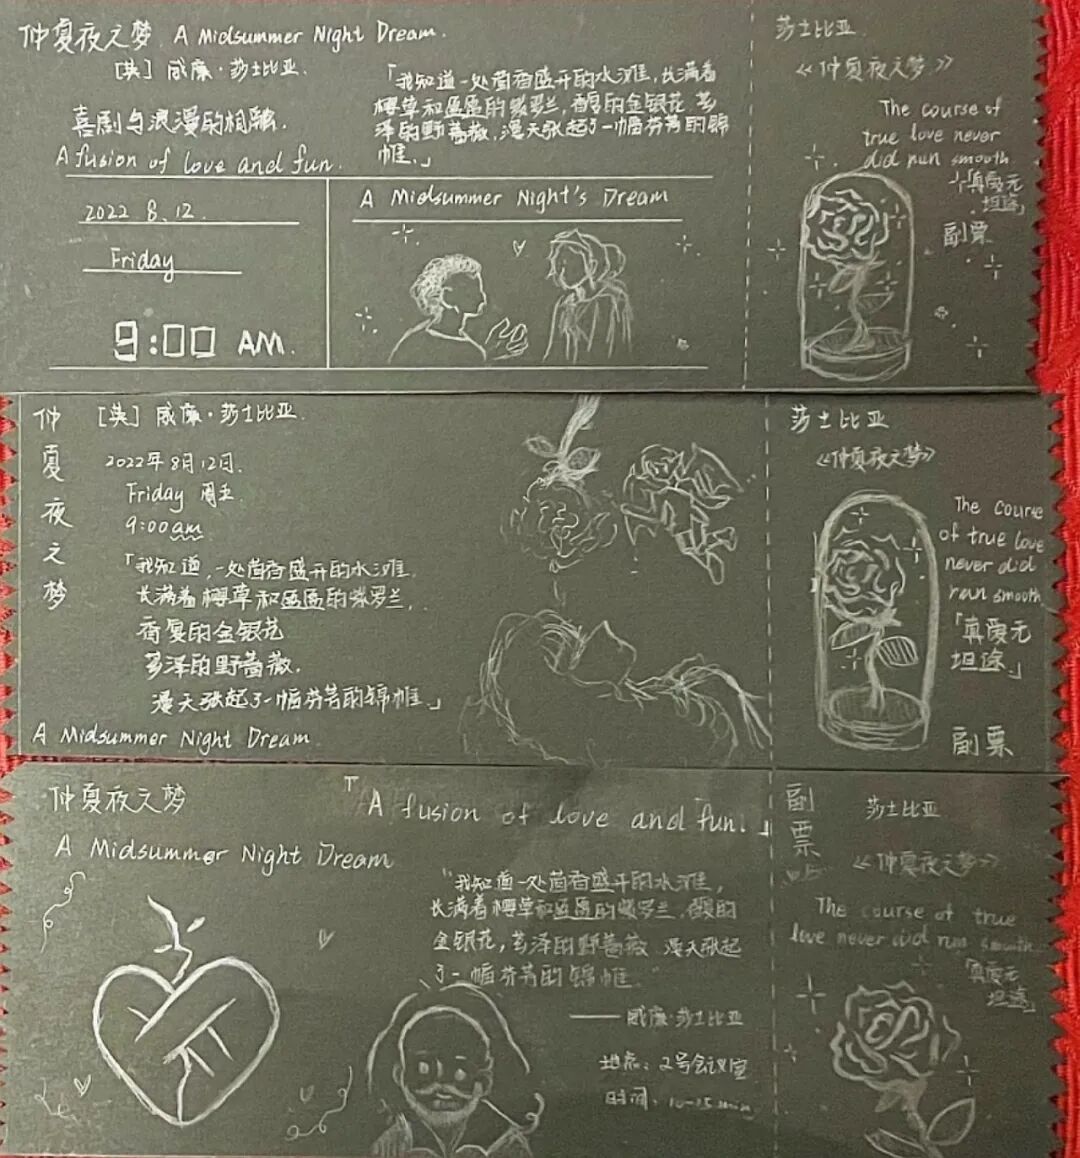 仲夏夜之梦 A Midsummer Night Dream.
[英] 威廉·莎士比亚.
喜剧与浪漫的相融.
A fusion of love and fun.
「我知道一处茴香盛开的水滩,长满着
樱草和盈盈的紫罗兰,馥郁的金银花,芗
泽的野蔷薇,漫天张起了一幅芬芳的锦
帷.」
2022 8.12.
Friday
9:00 AM.
A Midsummer Night's Dream
莎士比亚.
《仲夏夜之梦》
The course of
true love never
did run smooth
「真爱无
坦途」
副票
仲夏夜之梦
[英] 威廉·莎士比亚.
2022年8月12日.
Friday 周五.
9:00am
「我知道,一处茴香盛开的水滩.
长满着樱草和盈盈的紫罗兰,
香馥的金银花
芗泽的野蔷薇.
漫天张起了一幅芬芳的锦帷.」
A Midsummer Night Dream.
莎士比亚
《仲夏夜之梦》
The course
of true love
never did
run smooth
「真爱无
坦途.」
副票
仲夏夜之梦
A Midsummer Night Dream
「A fusion of love and fun.」
"我知道一处茴香盛开的水滩,
长满着樱草和盈盈的紫罗兰,馥郁的
金银花,芗泽的野蔷薇.漫天张起
了一幅芬芳的锦帷."
——威廉·莎士比亚
地点:2号会议室
时间:10-15min
副票
莎士比亚
《仲夏夜之梦》
The course of true
love never did run smooth.
「真爱无
坦途」